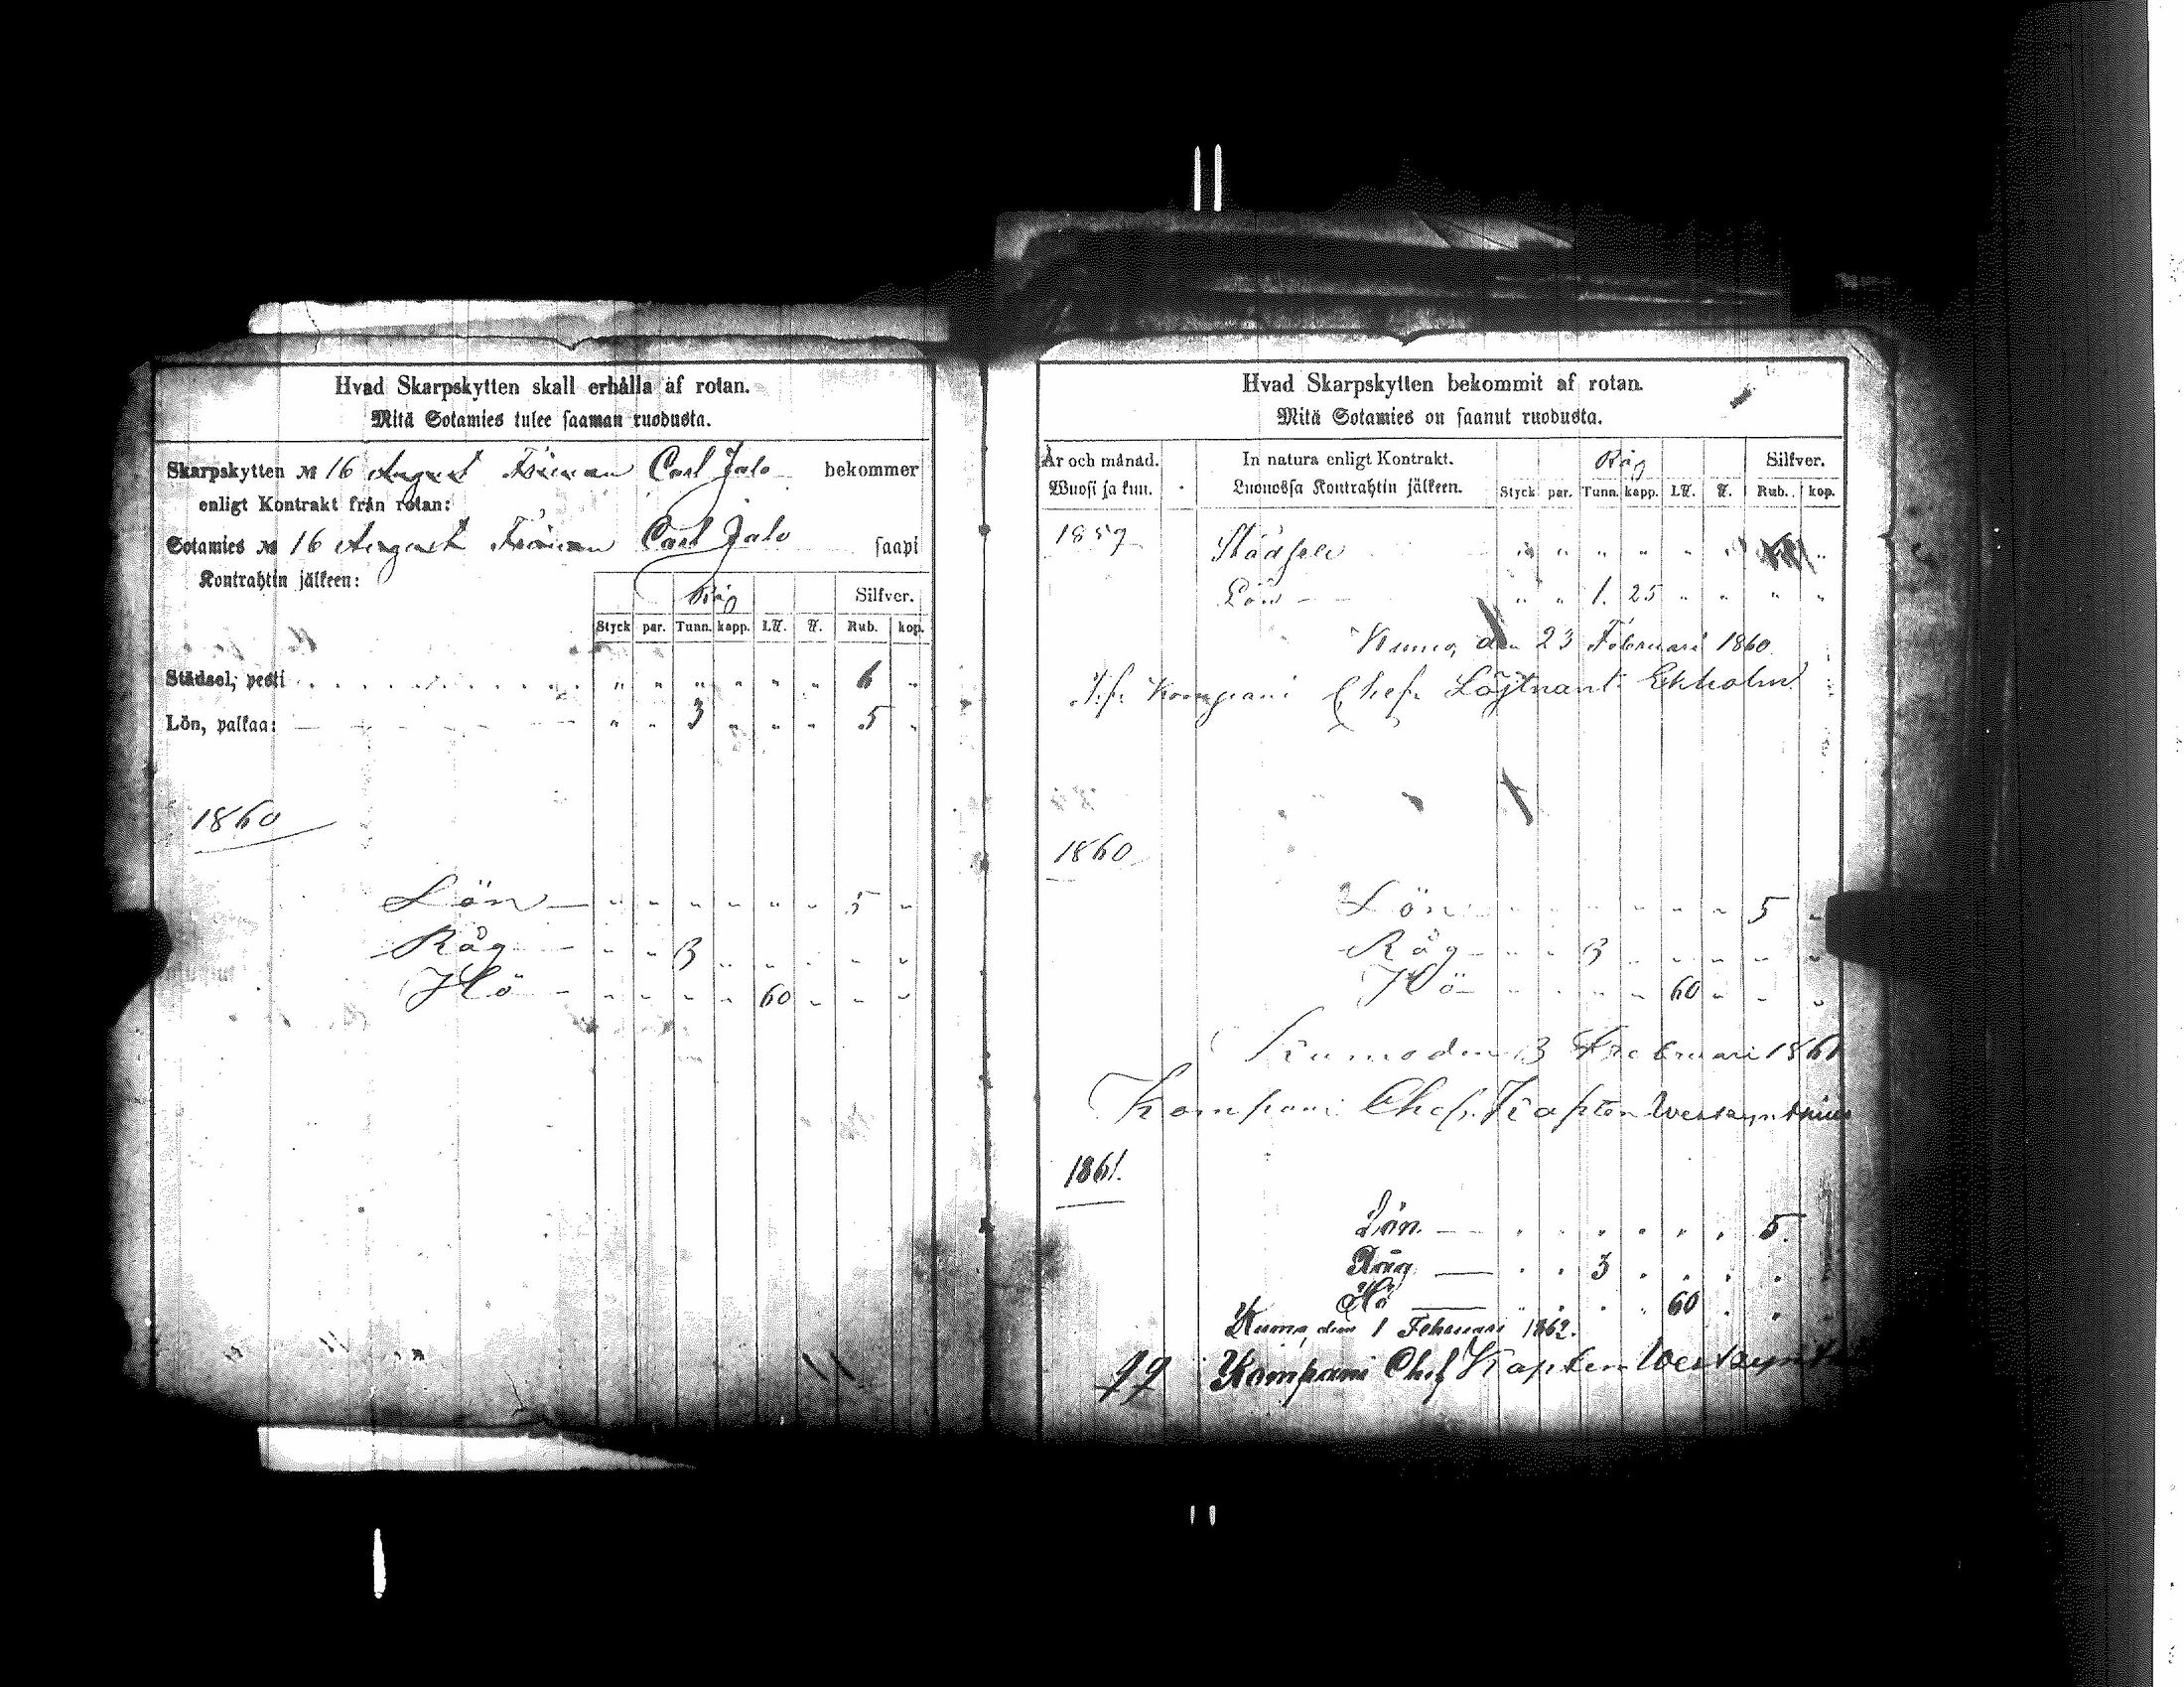 Hvad Skarpskytten skall erhålla af rotan.
Mitä Sotamies tulee saaman ruodusta.
Skarpskytten № 16 August Carl Jalo bekommer
enligt Kontrakt från rotan:
Sotamies № 16 August Carl Jalo saapi
Kontrahtin jälkeen:
Råg Silfver.
Styck par. Tunn. kapp. L℔. ℔. Rub. kop.
Städsel, pesti " " " " " " 6 "
Lön, palkaa: " " 3 " " " 5 "
1860
Lön " " " " " " 5 "
Råg " " 3 " " " " "
Hö " " " " 60 " " "
Hvad Skarpskytten bekommit af rotan.
Mitä Sotamies on saanut ruodusta.
År och månad. In natura enligt Kontrakt. Råg Silfver.
Wuosi ja kuu. Luonossa Kontrahtin jälkeen. Styck par. Tunn. kapp. L℔. ℔. Rub. kop.
1859 Städsel " " " " " " "
Lön " " 1. 25 " " " "
Kumo, den 23 Februari 1860
Kompani Chef. Löjtnant Ekholm
1860
Lön " " " " " " 5 "
Råg " " 3 " " " " "
Hö " " " " 60 " " "
Kumo den 3 Februari 1861
Kompani Chef. Kapten
1861.
Lön " " " " " " 5.
Råg " " 3 " " " "
Hö " " " " 60 " "
Kumo, den 1 Februari 1862.
Kompani Chef Kapten